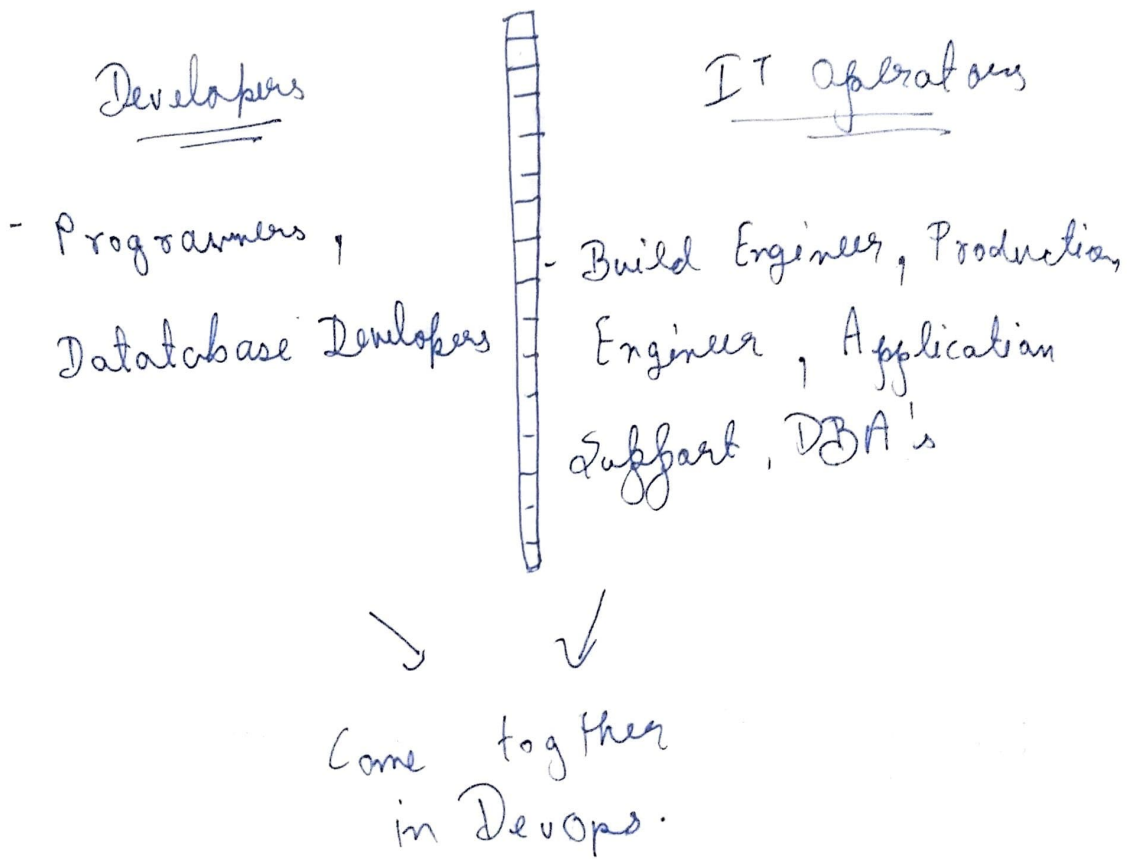 Developers
- Programmers,
Datatabase Developers
IT Operators
- Build Engineer, Production
Engineer, Application
Support, DBA's
Come togther
in DevOps.